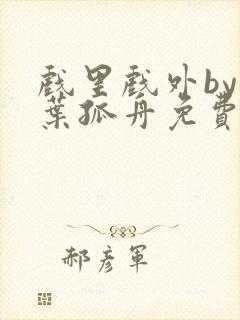 戲里戲外by
葉孤舟免費
郝彥軍